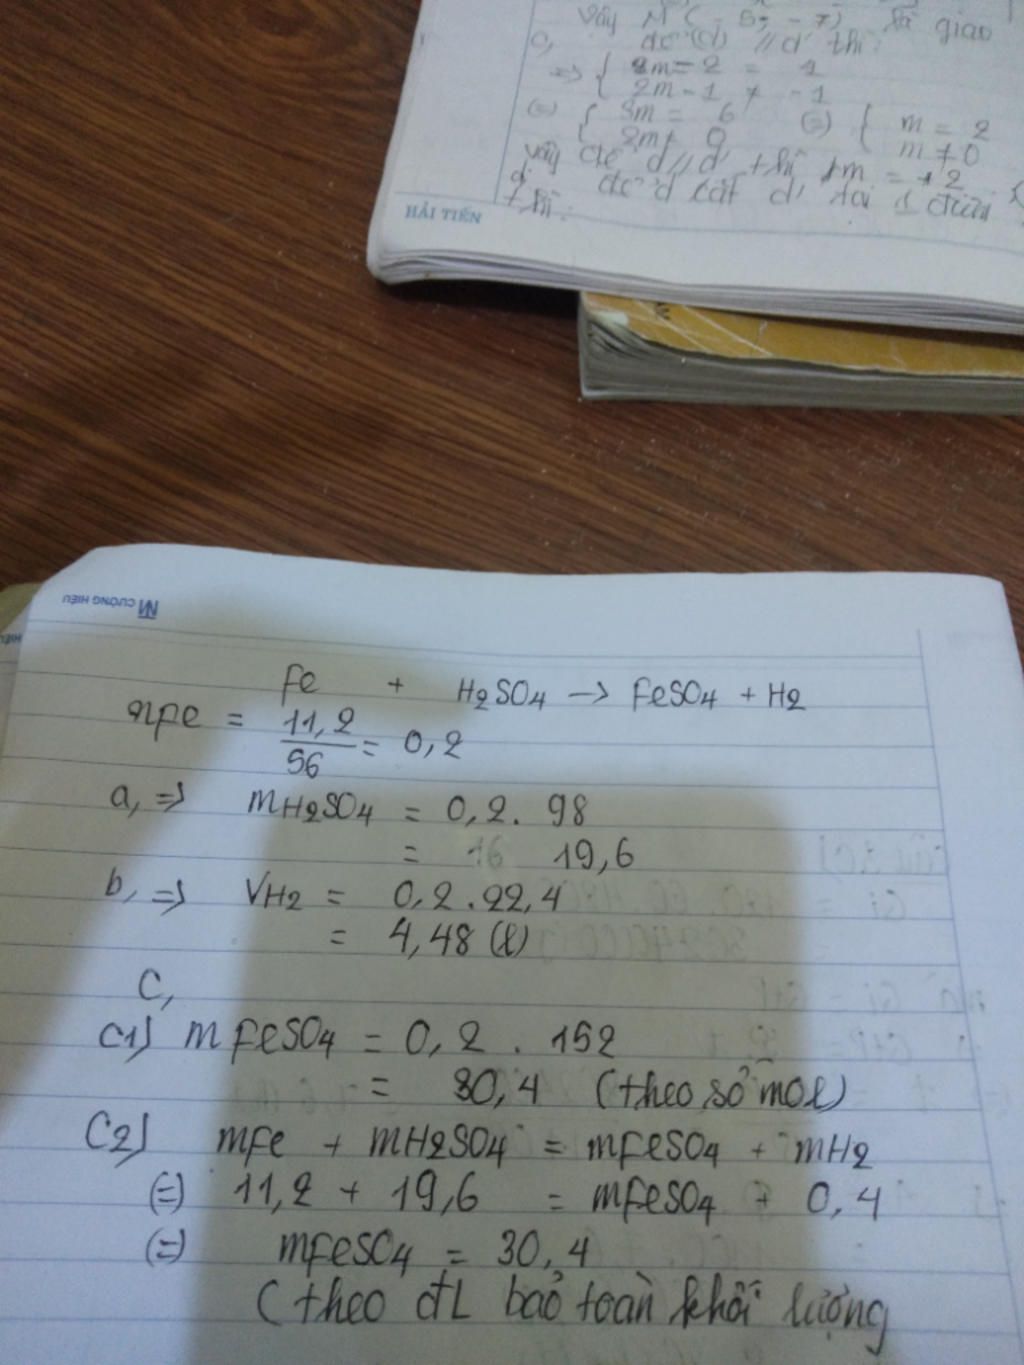 Vậy M ( - 5; - 7) là giao
c, để (d) // d' thì:
=> { 3m - 2 = 4
2m - 1 ≠ - 1
(=) { 3m = 6 (=) { m = 2
2m ≠ 0 m ≠ 0
Vậy để d // d' thì m = 2
d, để d cắt d' tại 1 điểm
thì:
HẢI TIẾN
CƯỜNG HIẾU
Fe + H2SO4 -> FeSO4 + H2
nFe = 11,2 / 56 = 0,2
a, => mH2SO4 = 0,2. 98
= 19,6
b, => VH2 = 0,2.22,4
= 4,48 (l)
C,
C1) mFeSO4 = 0,2 . 152
= 30,4 (theo số mol)
C2) mFe + mH2SO4 = mFeSO4 + mH2
(=) 11,2 + 19,6 = mFeSO4 + 0,4
(=) mFeSO4 = 30,4
(theo đL bảo toàn khối lượng